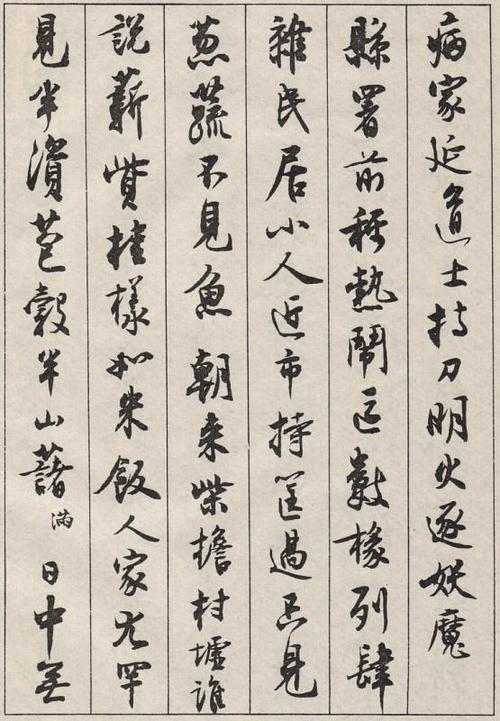 病家延道士持刀明火逐妖魔
縣署前称熱鬧區數椽列肆
雜民居小人近市持筐過只見
葱蔬不見魚朝来柴擔村墟誰
說薪貲桂樣如米飯人家尤罕
見半資苞穀半山藷滿日中